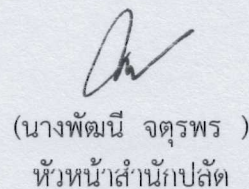 (นางพัฒนี จตุรพร )
หัวหน้าสำนักปลัด